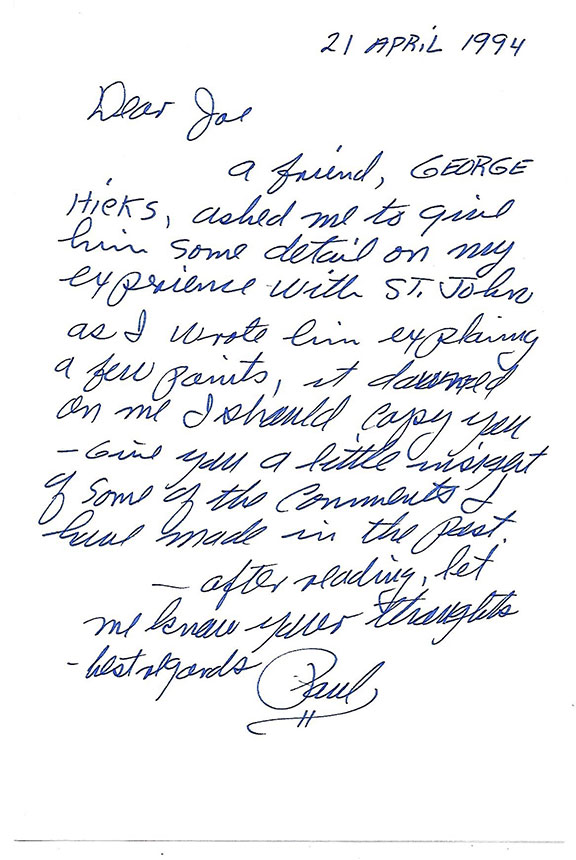 21 APRIL 1994
Dear Joe
a friend, GEORGE
HICKS, asked me to give
him some detail on my
experience with ST. John
as I wrote him explaing
a few points, it dawned
on me I should copy you
- Give you a little insight
of some of the Comments I
have made in the past.
- after reading, let
me know your thoughts
- best regards Paul